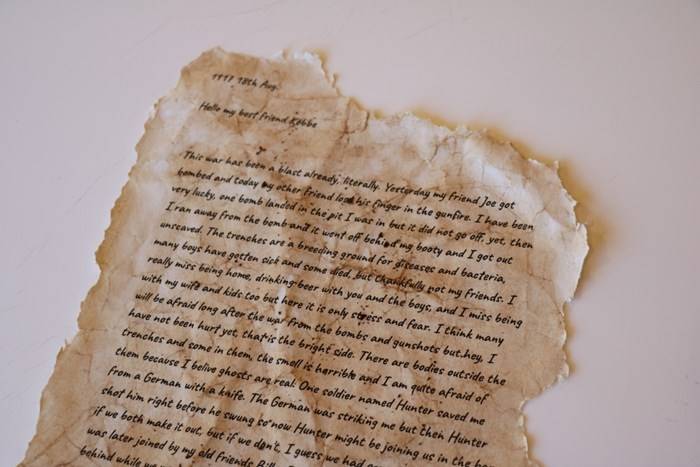 1917 18th Aug.
Hello my best friend Kobbe
This war has been a blast already, literally. Yesterday my friend Joe got
bombed and today my other friend lost his finger in the gunfire. I have been
very lucky, one bomb landed in the pit I was in but it did not go off, yet, then
I ran away from the bomb and it went off behind my booty and I got out
unscaved. The trenches are a breeding ground for diseases and bacteria,
many boys have gotten sick and some died, but thankfully not my friends. I
really miss being home, drinking beer with you and the boys, and I miss being
with my wife and kids too but here it is only stress and fear. I think many
will be afraid long after the war from the bombs and gunshots but hey, I
have not been hurt yet, that is the bright side. There are bodies outside the
trenches and some in them, the smell is horrible and I am quite afraid of
them because I belive ghosts are real. One soldier named Hunter saved me
from a German with a knife. The German was striking me but then Hunter
shot him right before he swung so now Hunter might be joining us in the
if we both make it out, but if we don't, I guess we had
was later joined by my old friends
behind while we